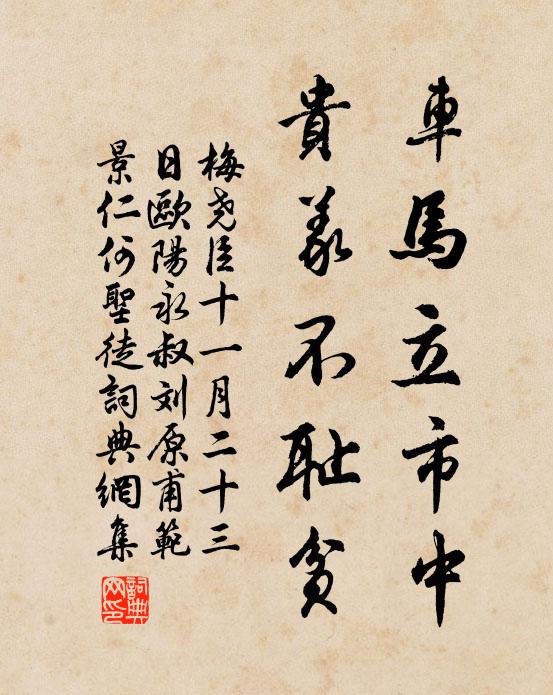 車馬立市中
貴義不耻貧
梅尧臣十一月二十三
日歐陽永叔刘原甫範
景仁何聖徒詞典網集
詞典网印